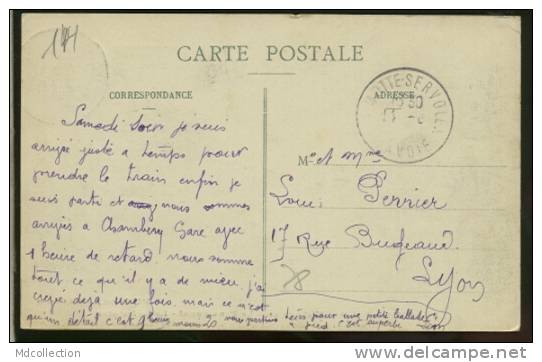 144
CARTE POSTALE
CORRESPONDANCE
ADRESSE
MOTTE-SERVOLEX
30
SAVOIE
Samedi soir je suis
arrivé juste à temps pour
prendre le train enfin je
suis partie et nous sommes
arrivés a Chambery Gare avec
1 heure de retard. nous somme
tout ce qu'il y a de mieu, j'ai
crevé deja une fois, mais ce n'est
qu'un détail c'est
nous partirons
pour une petite ballade
a pied. c'est superbe
Mr et Mme
Louis Perrier
17 Rue Bugeaud
Lyon
MDcollection
www.delcampe.net